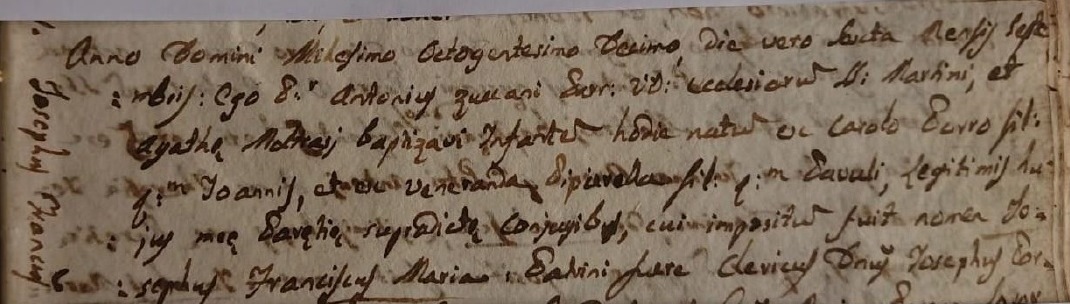 Anno Domini Milesimo Octogentesimo Decimo, die vero sexta Mensis Septe
:mbris: Ego Antonius Curr: ecclesiarū S: Martini, et
Agathę baptizavi Infantē hodie natū ex Carolo fil:
q:m Joannis, et ex veneranda fil: q:m Pauli, Legitimis hu:
:jus meę supradictę Conjugibus, cui impositū fuit nomen Jo:
:sephus Franciscus Maria: fuere Clericus Dnus Josephus
Josephus Franciscus